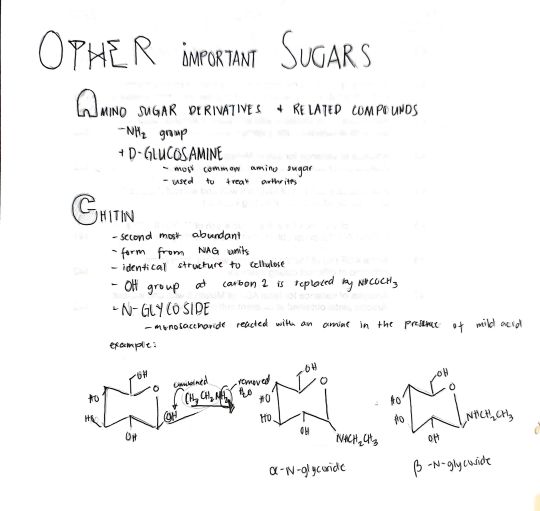 OTHER IMPORTANT SUGARS
AMINO SUGAR DERIVATIVES + RELATED COMPOUNDS
-NH2 group
+ D-GLUCOSAMINE
- most common amino sugar
- used to treat arthrites
CHITIN
- second most abundant
- form from NAG units
- identical structure to cellulose
- OH group at carbon 2 is replaced by NHCOCH3
- N-GLYCOSIDE
- monosaccharide reacted with an amine in the presence of mild acid
example:
OH
O
HO
HO
OH
OH
combined
CH3CH2NH2
removed
H2O
OH
O
HO
HO
OH
NHCH2CH3
α-N-glycoside
OH
O
HO
HO
OH
NHCH2CH3
β-N-glycoside